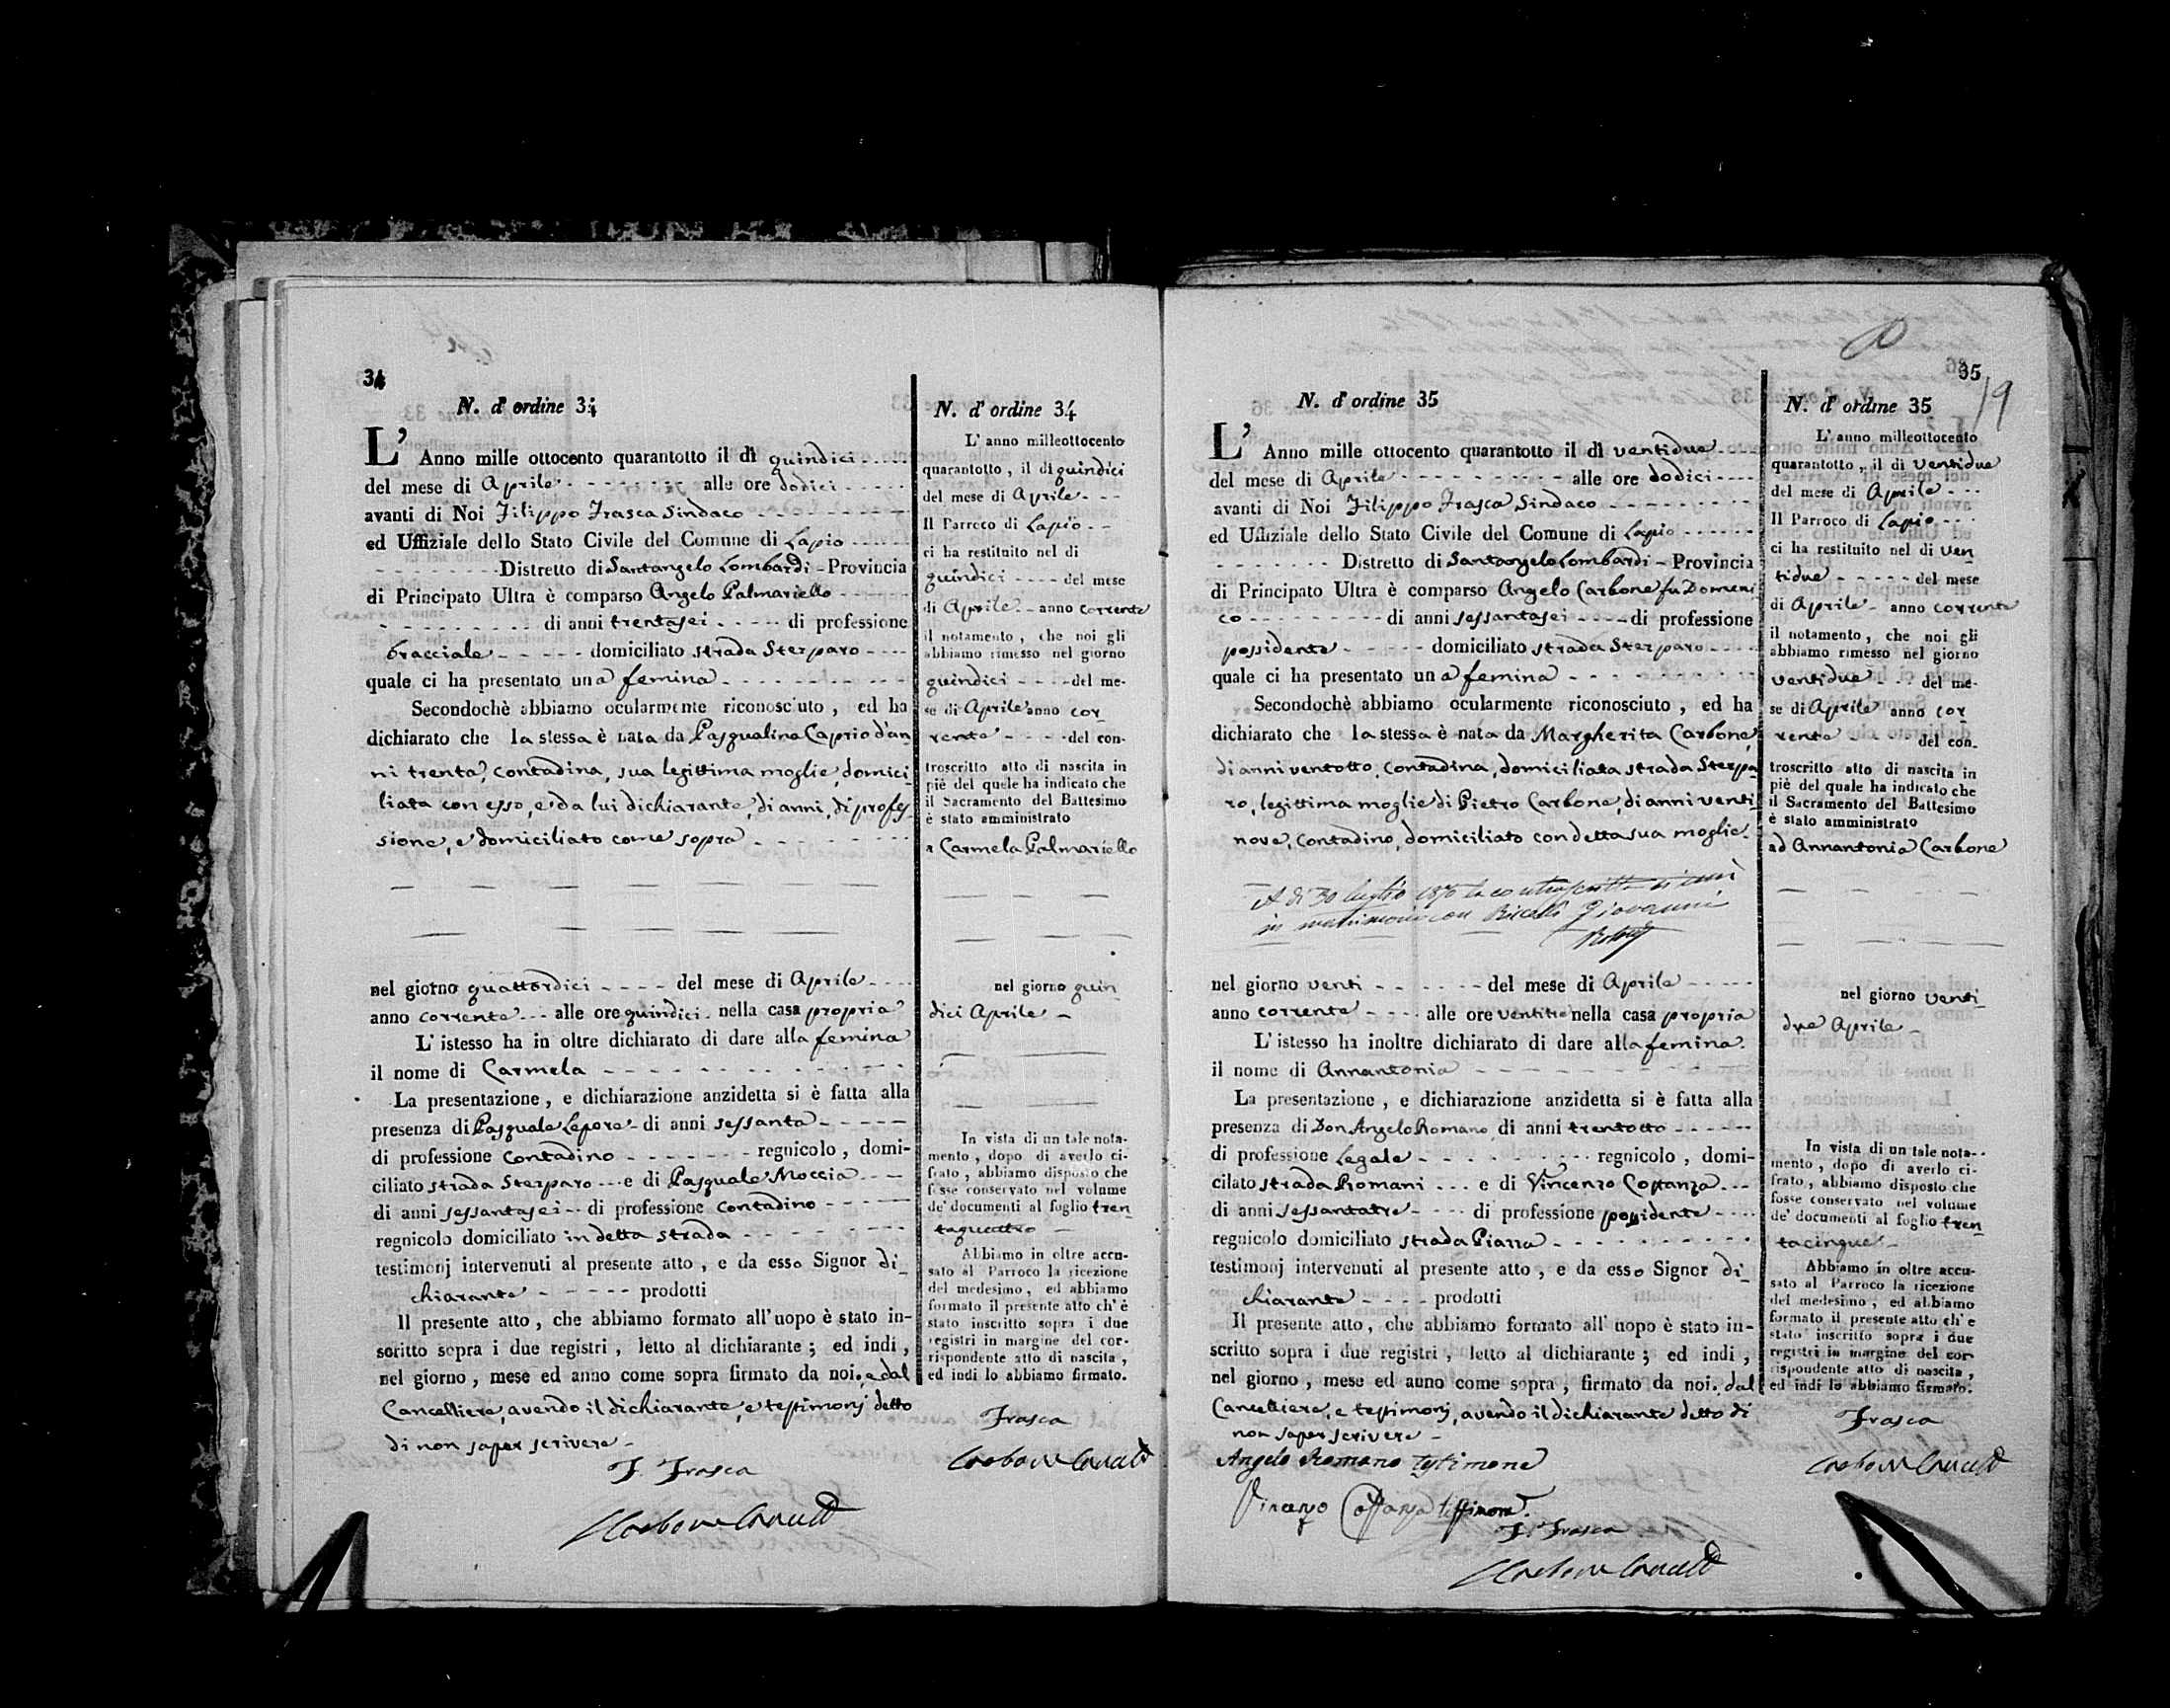 34
N. d' ordine 34
L' Anno mille ottocento quarantotto il dì quindici
del mese di Aprile alle ore dodici
avanti di Noi Filippo Frasca Sindaco
ed Uffiziale dello Stato Civile del Comune di Lapio
Distretto di Santangelo Lombardi - Provincia
di Principato Ultra è comparso Angelo Palmariello
di anni trentasei di professione
bracciale domiciliato strada Sterparo
quale ci ha presentato una femina
Secondochè abbiamo ocularmente riconosciuto, ed ha
dichiarato che la stessa è nata da Pasqualina Caprio d'an
ni trenta, contadina, sua legittima moglie, domici
liata con esso, e da lui dichiarante, di anni, di profes-
sione, e domiciliato come sopra
nel giorno quattordici del mese di Aprile
anno corrente alle ore quindici nella casa propria
L' istesso ha in oltre dichiarato di dare alla femina
il nome di Carmela
La presentazione, e dichiarazione anzidetta si è fatta alla
presenza di Pasquale Lepore di anni sessanta
di professione contadino regnicolo, domi-
ciliato strada Sterparo e di Pasquale Moccia
di anni sessantasei di professione contadino
regnicolo domiciliato in detta strada
testimonj intervenuti al presente atto, e da esso Signor di_
chiarante prodotti
Il presente atto, che abbiamo formato all'uopo è stato in-
scritto sopra i due registri, letto al dichiarante; ed indi,
nel giorno, mese ed anno come sopra firmato da noi, e dal
Cancelliere, avendo il dichiarante, e testimonj detto
di non saper scrivere
F. Frasca
Carbone Canc.
N. d' ordine 34
L' anno milleottocento
quarantotto, il dì quindici
del mese di Aprile
Il Parroco di Lapio
ci ha restituito nel di
quindici del mese
di Aprile anno corrente
il notamento, che noi gli
abbiamo rimesso nel giorno
quindici del me-
se di Aprile anno cor_
rente del con-
troscritto atto di nascita in
piè del quele ha indicato che
il Sacramento del Battesimo
è stato amministrato
a Carmela Palmariello
nel giorno quin_
dici Aprile
In vista di un tale nota-
mento, dopo di averlo ci-
frato, abbiamo disposto che
fosse conservato nel volume
de' documenti al foglio tren_
taquattro
Abbiamo in oltre accu-
sato al Parroco la ricezione
del medesimo, ed abbiamo
formato il presente atto ch' è
stato inscritto sopra i due
registri in margine del cor-
rispondente atto di nascita,
ed indi lo abbiamo firmato.
Frasca
Carbone Canc.
35
19
N. d' ordine 35
L' Anno mille ottocento quarantotto il dì ventidue
del mese di Aprile alle ore dodici
avanti di Noi Filippo Frasca Sindaco
ed Uffiziale dello Stato Civile del Comune di Lapio
Distretto di Santangelo Lombardi - Provincia
di Principato Ultra è comparso Angelo Carbone fu Domeni
co di anni sessantasei di professione
possidente domiciliato strada Sterparo
quale ci ha presentato una femina
Secondochè abbiamo ocularmente riconosciuto, ed ha
dichiarato che la stessa è nata da Margherita Carbone,
di anni ventotto, contadina, domiciliata strada Sterpa
ro, legittima moglie di Pietro Carbone, di anni venti_
nove, contadino, domiciliato con detta sua moglie.
A dì 30 luglio 1870 la controscritta si unì
in matrimonio con Giovanni
nel giorno venti del mese di Aprile
anno corrente alle ore ventitre nella casa propria
L' istesso ha inoltre dichiarato di dare alla femina
il nome di Annantonia
La presentazione, e dichiarazione anzidetta si è fatta alla
presenza di Don Angelo Romano di anni trentotto
di professione Legale regnicolo, domi-
cilato strada Romani e di Vincenzo Costanza
di anni sessantatre di professione possidente
regnicolo domiciliato strada Piazza
testimonj intervenuti al presente atto, e da esso Signor di_
chiarante prodotti
Il presente atto, che abbiamo formato all' uopo è stato in-
scritto sopra i due registri, letto al dichiarante; ed indi,
nel giorno, mese ed anno come sopra, firmato da noi, dal
Cancelliere, e testimonj, avendo il dichiarante detto di
non saper scrivere
Angelo Romano testimone
Vincenzo Costanza testimone
F. Frasca
Carbone Canc.
N. d' ordine 35
L' anno milleottocento
quarantotto, il di ventidue
del mese di Aprile
Il Parroco di Lapio
ci ha restituito nel di ven_
tidue del mese
di Aprile anno corrente
il notamento, che noi gli
abbiamo rimesso nel giorno
ventidue del me-
se di Aprile anno cor_
rente del con-
troscritto atto di nascita in
piè del quale ha indicato che
il Sacramento del Battesimo
è stato amministrato
ad Annantonia Carbone
nel giorno venti_
due Aprile
In vista di un tale nota-
mento, dopo di averlo ci-
frato, abbiamo disposto che
fosse conservato nel volume
de' documenti al foglio tren_
tacinque
Abbiamo in oltre accu-
sato al Parroco la ricezione
del medesimo, ed abbiamo
formato il presente atto ch' e
stato inscritto sopra i due
registri in margine del cor-
rispondente atto di nascita,
ed indi lo abbiamo firmato.
Frasca
Carbone Canc.